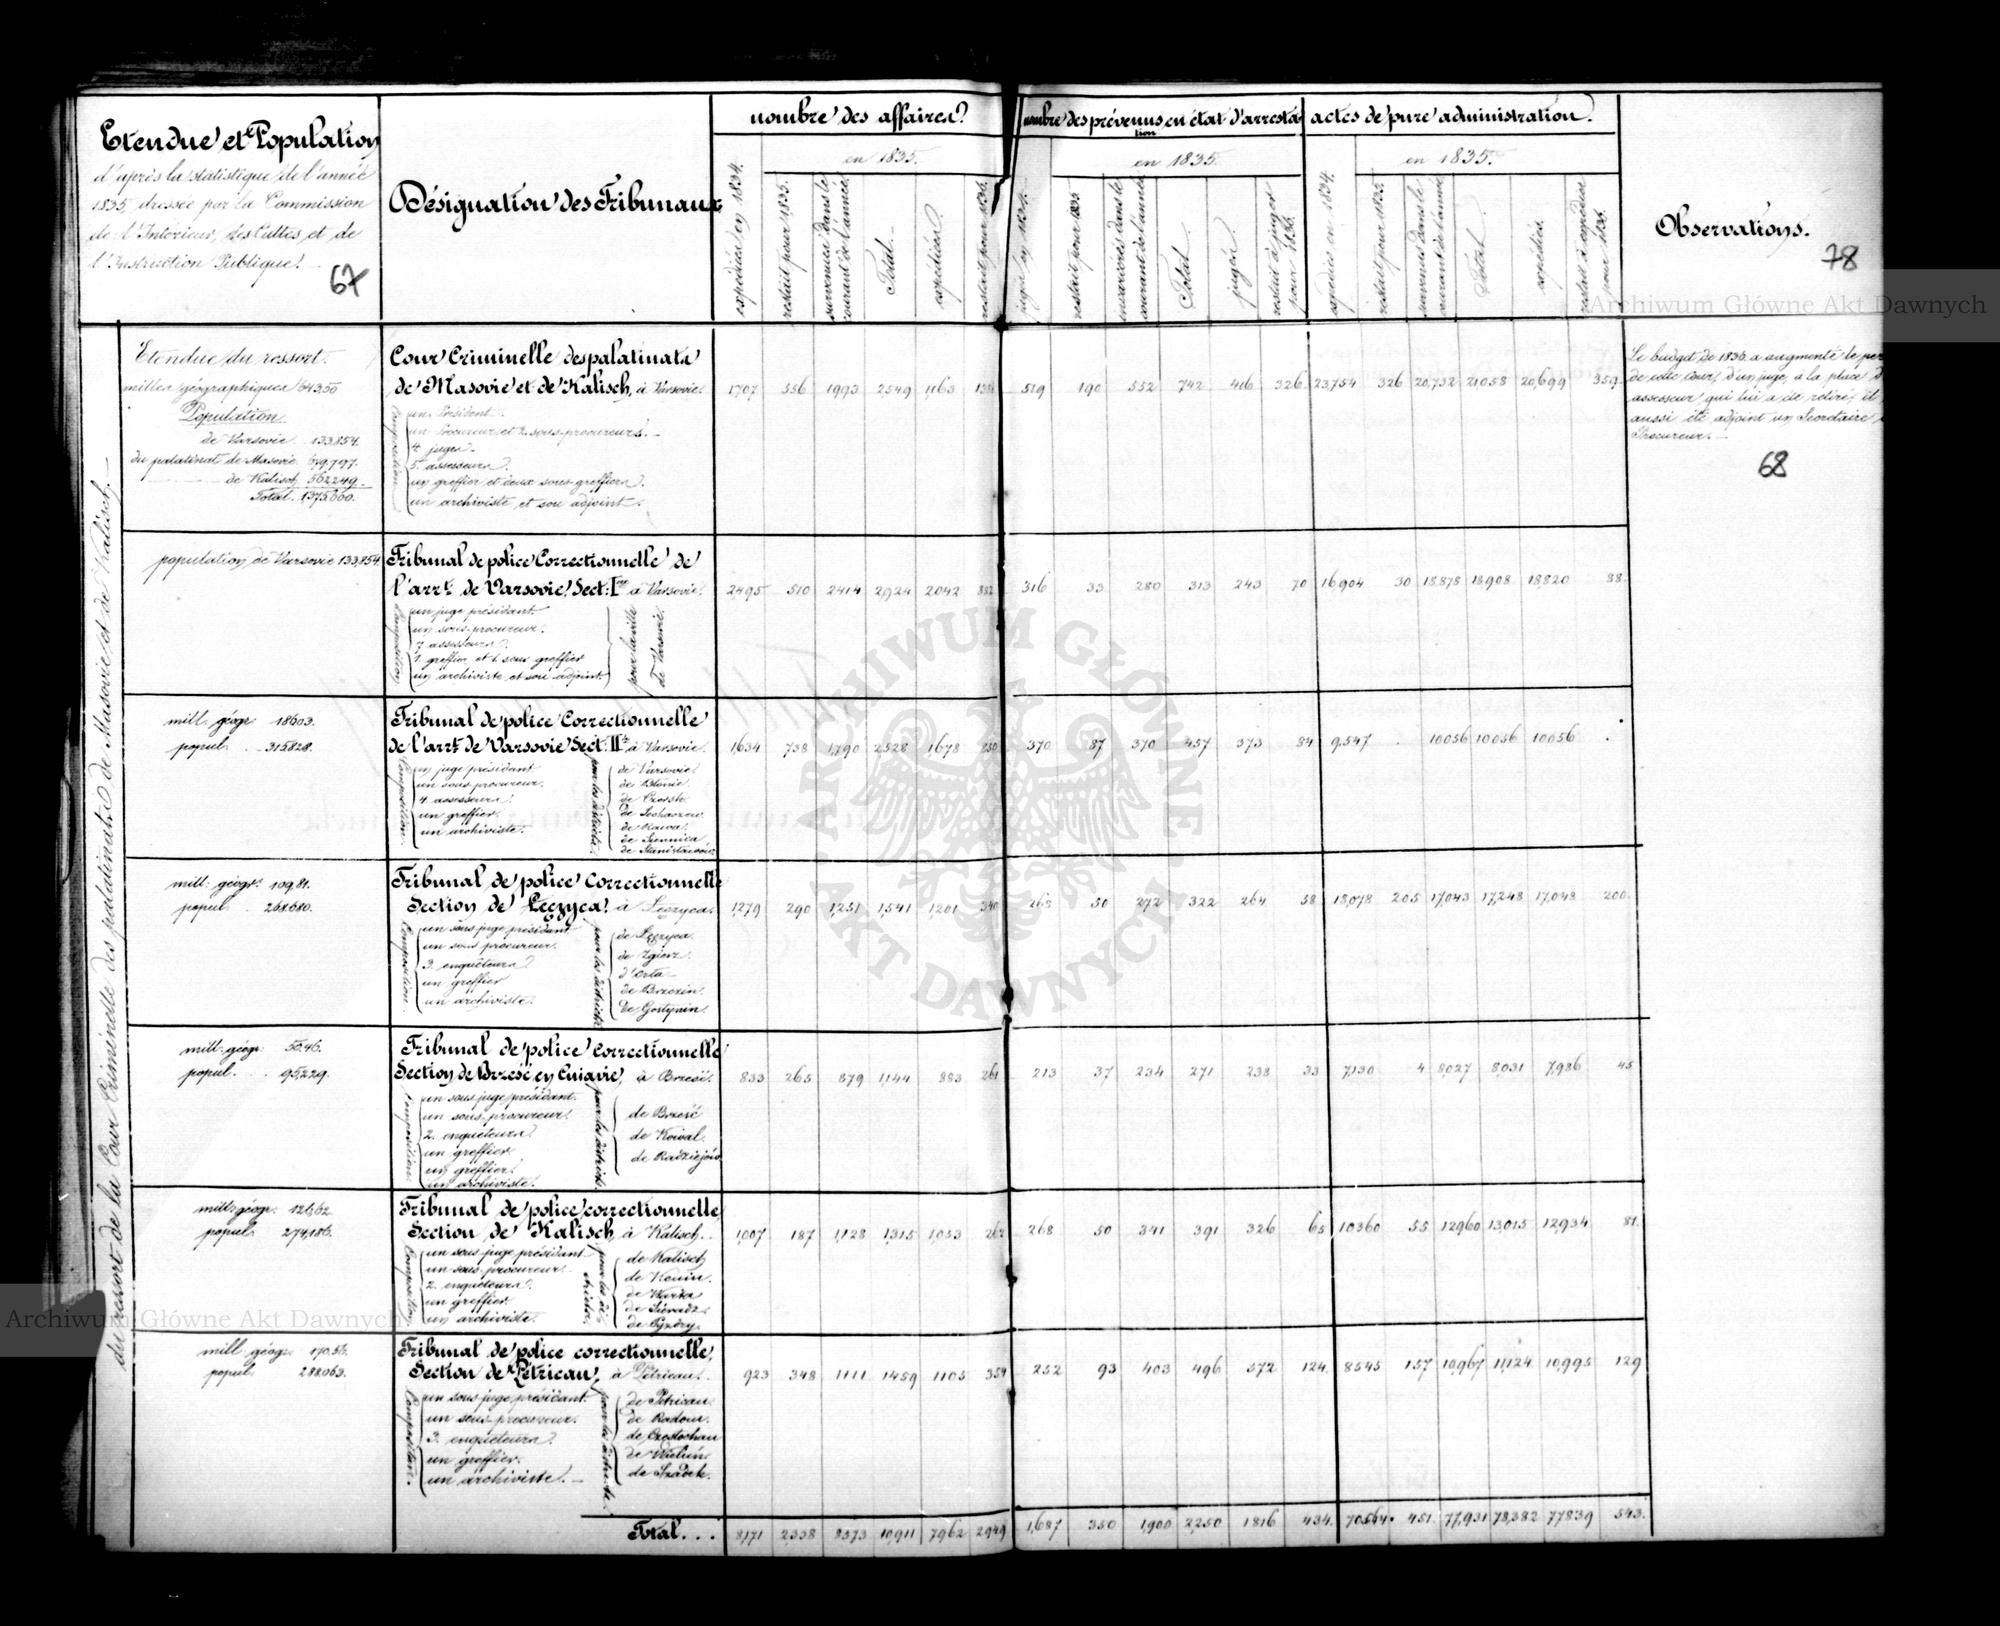 Etendue et Population
d'après la statistique de l'année
1835, dressée par la Commission
de l'Intérieur, des Cultes et de
l'Instruction Publique.
67
Désignation des Tribunaux
nombre des affaires
expédiées en 1834.
en 1835.
restait pour 1835.
survenues dans le
courant de l'année
Total.
expédiées.
restait pour 1836.
nombre des prévenus en état d'arresta
tion
jugés en 1834.
en 1835.
restait pour 1835
incarcérés dans le
courant de l'année
Total.
jugés.
restait à juger
pour 1836.
actes de pure administration.
expédiés en 1834.
en 1835.
restait pour 1835.
survenus dans le
courant de l'année
Total.
expédiés.
restait à expédier
pour 1836.
Observations.
78
Archiwum Główne Akt Dawnych
du ressort de la Cour Criminelle des palatinats de Masovie et de Kalisch.
Etendue du ressort.
milles géographiques 643,50
Population
de Varsovie 133,854.
du palatinat de Masovie 679,797.
de Kalisch 562,249.
Total 1375,600.
Cour Criminelle des palatinats
de Masovie et de Kalisch, à Varsovie.
Composition
un Président.
un Procureur et 2 sous-procureurs.
4 juges.
5 assesseurs.
un greffier et deux sous-greffiers.
un archiviste et son adjoint.
1707 556 1993 2549 1163
519 190 552 742 416 326
23,754 326 20,732 21,058 20,699 359.
Le budget de 1836 a augmenté le per
de cette Cour, d'un juge, à la place d
assesseur qui lui a été retiré, il
aussi été adjoint un Secrétaire
Procureur.
68
population de Varsovie 133,854.
Tribunal de police Correctionnelle de
l'arrt. de Varsovie, Sect: Ire à Varsovie.
Composition
un juge présidant.
un sous-procureur.
7 assesseurs.
1 greffier et 1 sous greffier
un archiviste et son adjoint.
pour la ville
de Varsovie.
2495 510 2414 2,924 2042 882
316 33 280 313 243 70
16,904 30 18,878 18,908 18,820 88.
mill. géogr. 186,03.
popul. 315,828.
Tribunal de police Correctionnelle
de l'arrt. de Varsovie Sect. IIe à Varsovie.
Composition.
un juge présidant.
un sous procureur.
4 assesseurs.
un greffier.
un archiviste.
pour les districts
de Varsovie
de Blonie
de Czersk
de Sochaczew
de Rawa
de Siennica
de Stanislawow
1,634 738 1,790 2528 1678 850
370 87 370 457 373 84
9,547 . 10056 10056 10056 .
mill. géogr. 109,81.
popul. 268,680.
Tribunal de police Correctionnelle
Section de Łęczyca, à Łęczyca.
Composition.
un sous juge présidant.
un sous procureur.
3. enquêteurs.
un greffier
un archiviste.
pour les districts
de Łęczyca.
de Zgierz.
d'Orła
de Brzezin.
de Gostynin.
1,279 290 1,251 1,541 1,201 340
268 50 272 322 264 58
18,078 205 17,043 17,248 17,048 200.
mill. géogr. 50,46.
popul. 95,229.
Tribunal de police correctionnelle
Section de Brześć en Cuiavie, à Brześć.
Composition
un sous juge présidant.
un sous-procureur.
2. enquêteurs.
un greffier
un greffier.
un archiviste.
pour les districts
de Brześć
de Kowal.
de Radziejów
833 265 879 1,144 883 261
213 37 234 271 238 33
7,130 4 8,027 8,031 7,986 45
mill. géogr. 126,62.
popul. 274,186.
Tribunal de police correctionnelle,
Section de Kalisch, à Kalisch.
Composition.
un sous-juge présidant
un sous-procureur.
2. enquêteurs.
un greffier.
un archiviste.
pour les di-
stricts
de Kalisch
de Konin.
de Warta
de Sieradz.
de Pyzdry.
1,007 187 1,128 1,315 1,053 262
268 50 341 391 326 65
10360 55 12960 13,015 12,934 81.
Archiwum Główne Akt Dawnych
mill. géogr. 170,58.
popul. 288,063.
Tribunal de police correctionnelle,
Section de Pétricau, à Pétricau.
Composition.
un sous juge présidant.
un sous-procureur.
3. enquêteurs.
un greffier.
un archiviste.
pour les districts
de Pétricau.
de Radom.
de Czestochau
de Wielun.
de Szadek.
923 348 1111 1459 1105 354
252 93 403 496 372 124.
8545 157 10,967 11,124 10,995 129
Total...
8,171 2,338 8573 10,911 7,962 2949
1,687 350 1,900 2,250 1816 434.
70,564. 451. 77,931 78,382 77,839 543.
ARCHIWUM GŁÓWNE
AKT DAWNYCH